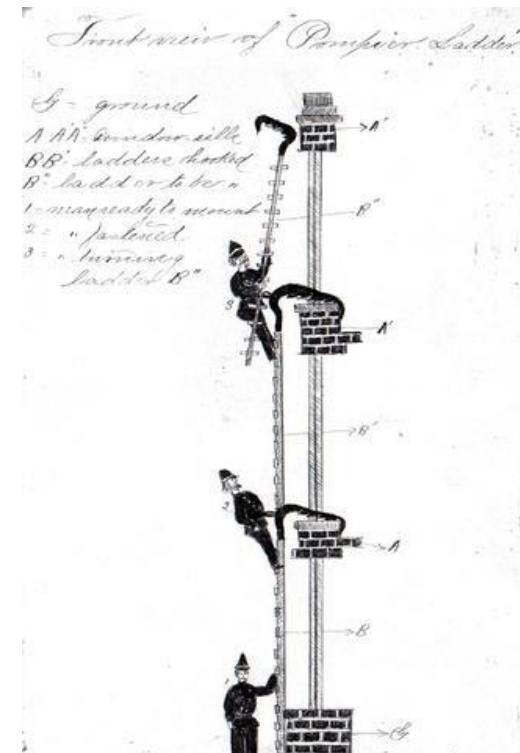 Front view of "Pompier Ladder.
G = ground
A A'A" window sills
B B' ladders hooked
B" ladder to be "
1 - man ready to mount
2 = " fastened
3 = " turning
ladder B"
A"
B"
3
A'
B'
2
A
B
1
G